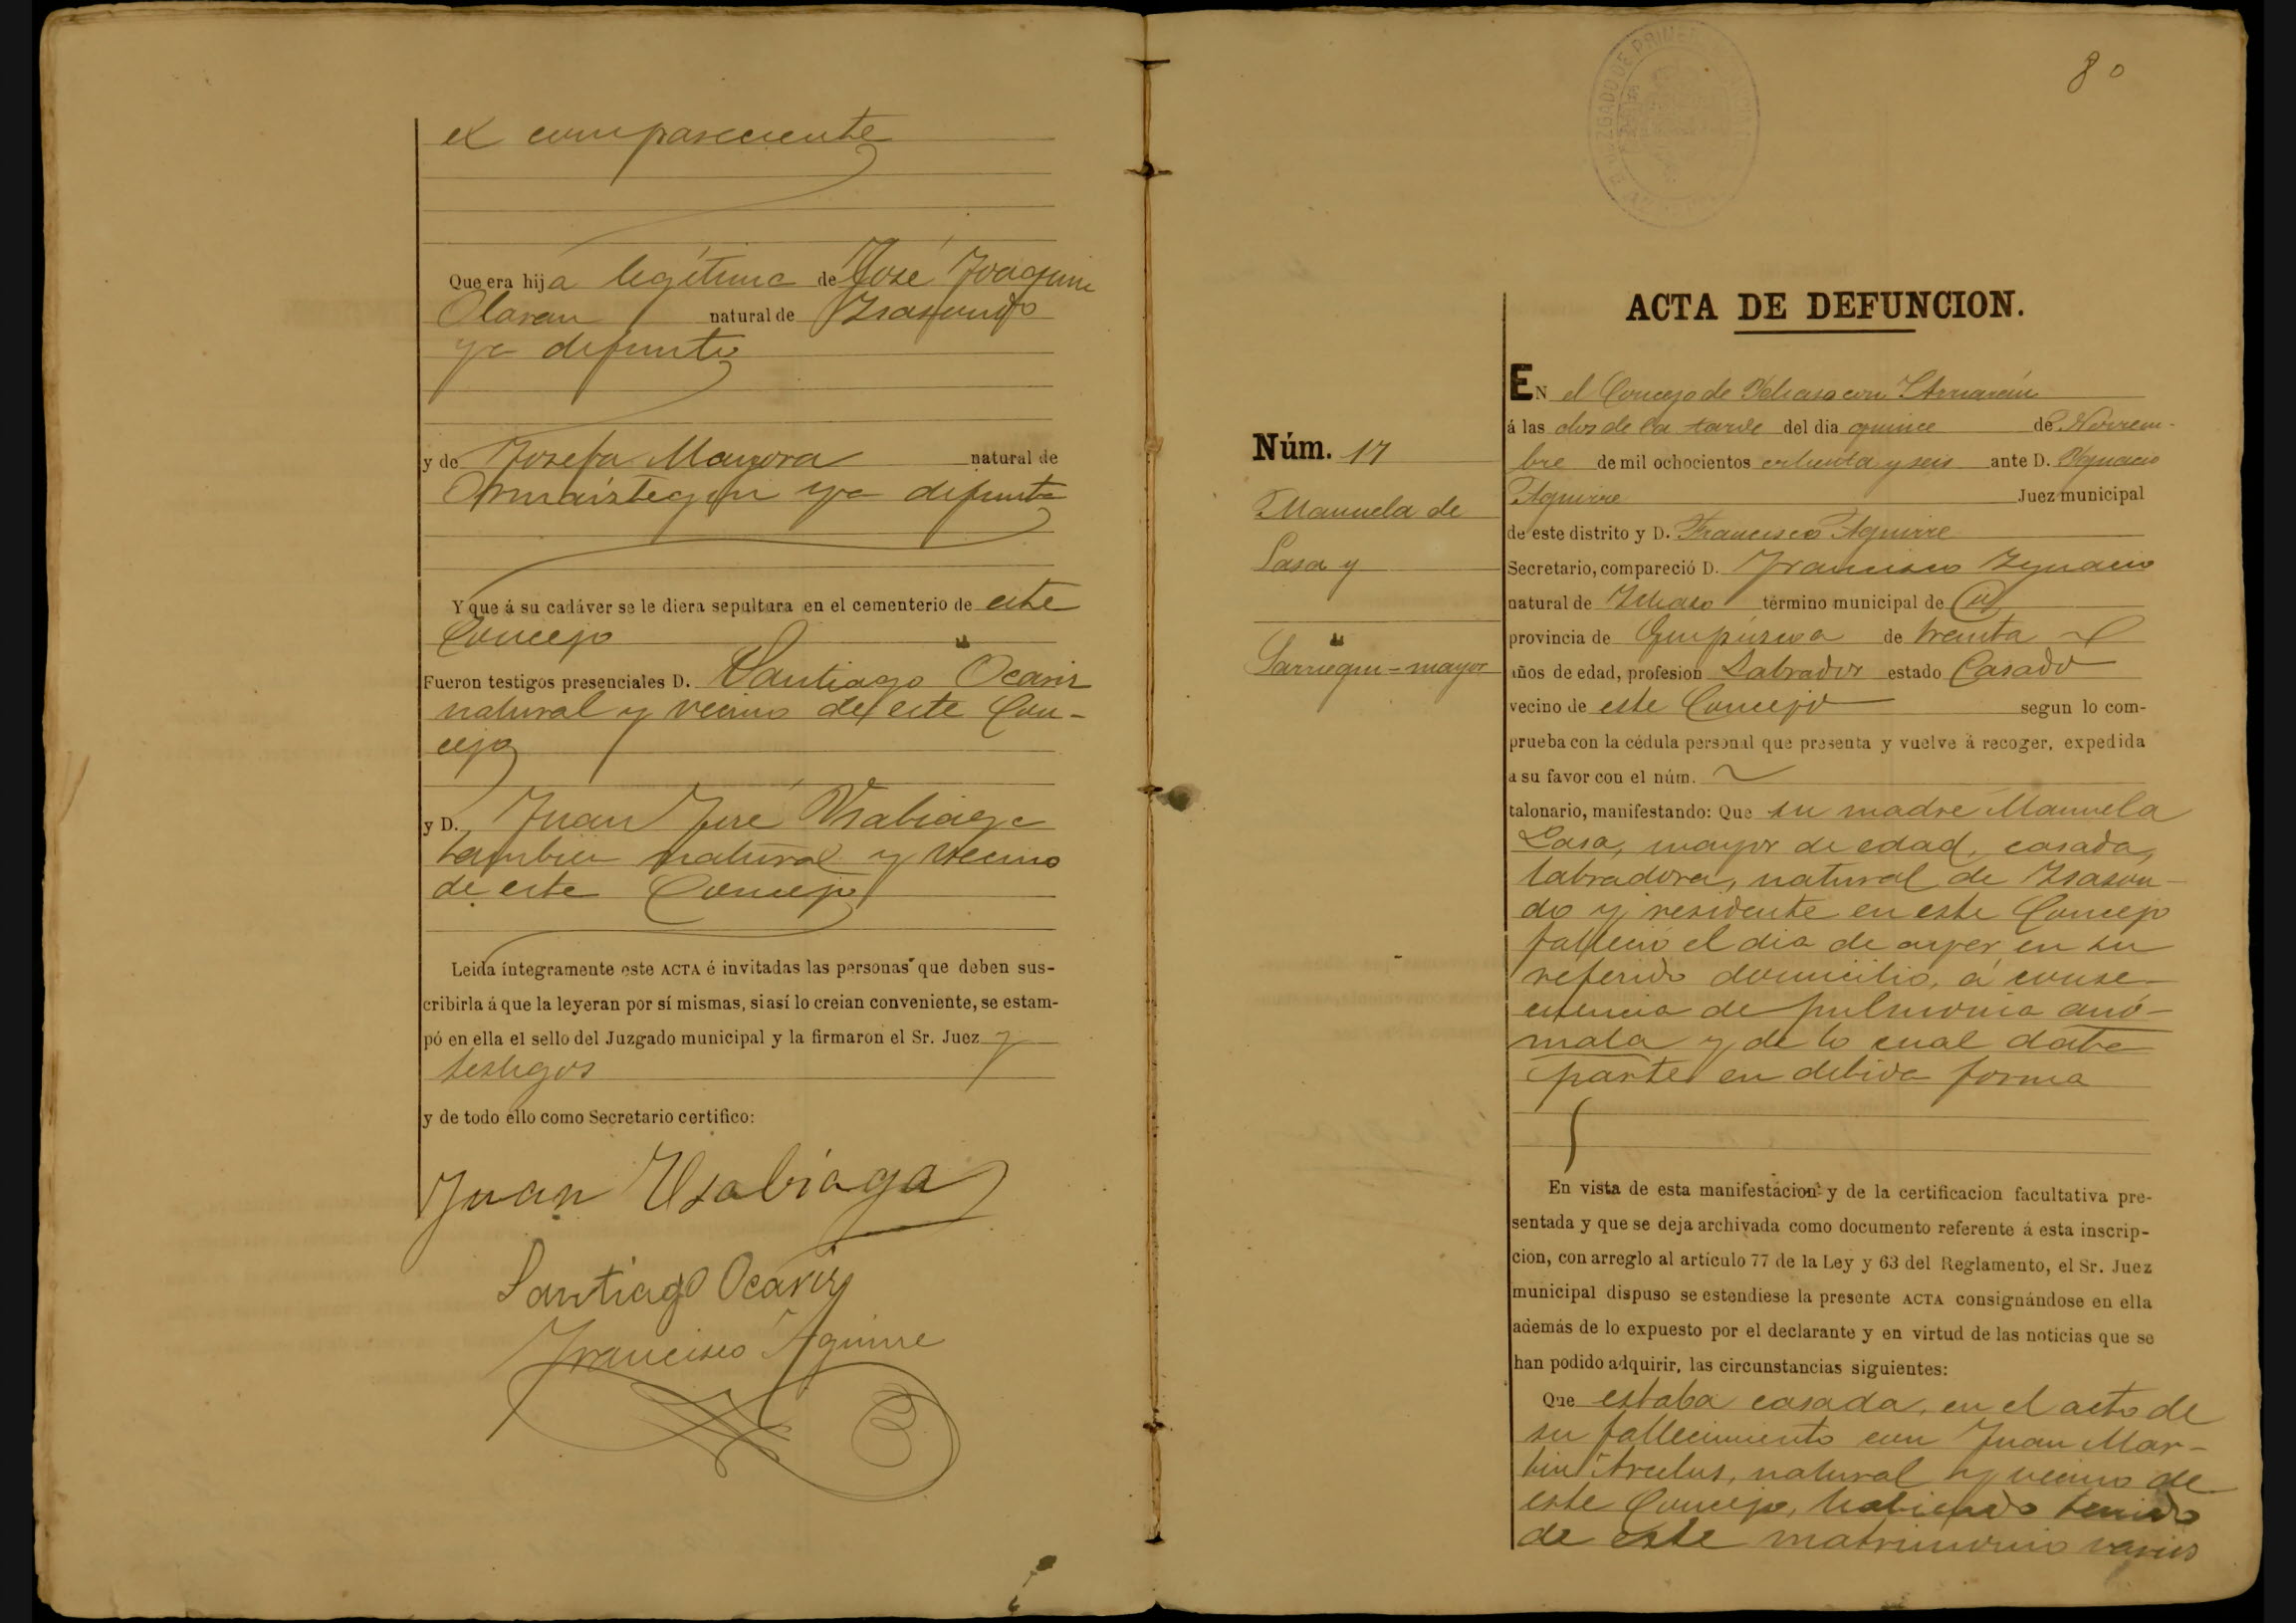 el compareciente
Que era hija legítima de José Joaquin
Olaran natural de Isasondo
ya difunto
y de Josefa Mayora natural de
Ormaiztegui ya difunta
Y que á su cadáver se le diera sepultura en el cementerio de este
Concejo
Fueron testigos presenciales D. Santiago Ocariz
natural y vecino de este Con-
cejo
y D. Juan José Usabiaga
tambien natural y vecino
de este Concejo
Leida íntegramente este ACTA é invitadas las personas que deben sus-
cribirla á que la leyeran por sí mismas, si así lo creian conveniente, se estam-
pó en ella el sello del Juzgado municipal y la firmaron el Sr. Juez y
testigos
y de todo ello como Secretario certifico:
Juan Usabiaga
Santiago Ocariz
Francisco Aguirre
80
ACTA DE DEFUNCION.
Núm. 17
Manuela de
Lasa y
Sarriegui-mayor
EN el Concejo de con
á las dos de la tarde del dia quince de Noviem-
bre de mil ochocientos ochenta y seis ante D. Ygnacio
Aguirre Juez municipal
de este distrito y D. Francisco Aguirre
Secretario, compareció D. Francisco Ignacio
natural de término municipal de
provincia de Guipúzcoa de treinta
años de edad, profesion Labrador estado Casado
vecino de este Concejo segun lo com-
prueba con la cédula personal que presenta y vuelve á recoger, expedida
a su favor con el núm.
talonario, manifestando: Que su madre Manuela
Lasa, mayor de edad, casada,
labradora, natural de Isason-
do y residente en este Concejo
falleció el dia de ayer en su
referido domicilio, á conse-
cuencia de pulmonia anó-
mala y de lo cual daba
parte en debida forma
En vista de esta manifestacion y de la certificacion facultativa pre-
sentada y que se deja archivada como documento referente á esta inscrip-
cion, con arreglo al artículo 77 de la Ley y 63 del Reglamento, el Sr. Juez
municipal dispuso se estendiese la presente ACTA consignándose en ella
además de lo expuesto por el declarante y en virtud de las noticias que se
han podido adquirir, las circunstancias siguientes:
Que estaba casada, en el acto de
su fallecimiento con Juan Mar-
tin natural y vecino de
este Concejo, habiendo tenido
de este matrimonio varios